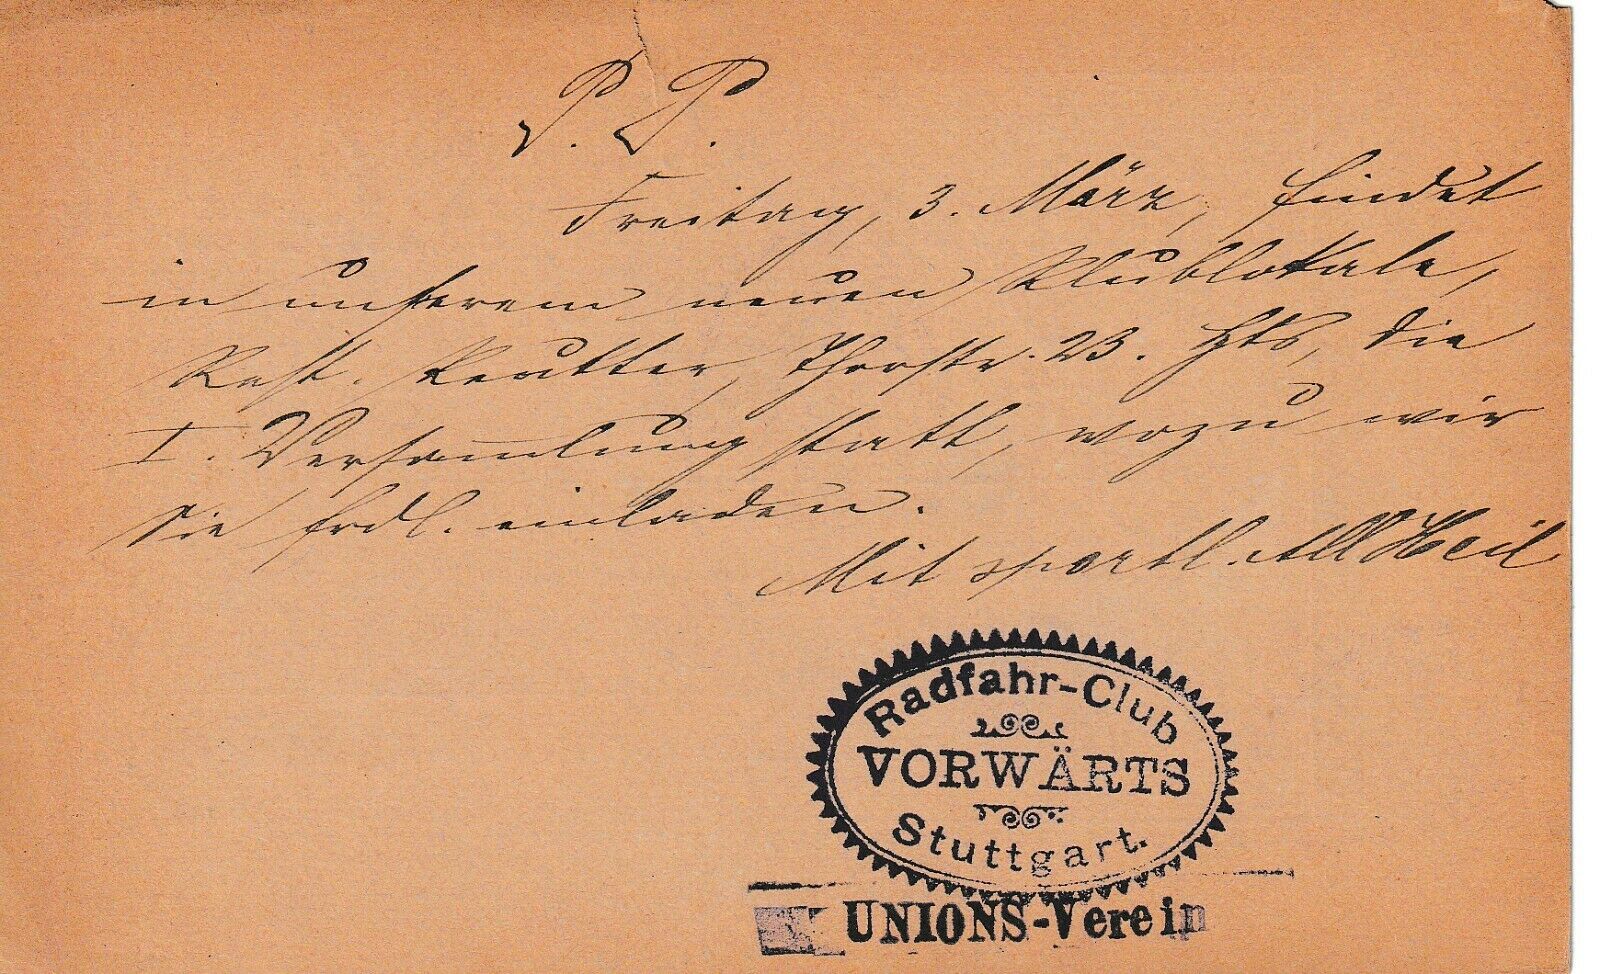 P. P.
Freitag, 3. März, findet
in unserem neuen Klublokale,
Rest. Reutter, Thorstr. 23. Hts, die
I. Versammlung statt, wozu wir
Sie frdl. einladen.
Mit sportl. All Heil
Radfahr-Club
VORWÄRTS
Stuttgart.
UNIONS-Verein